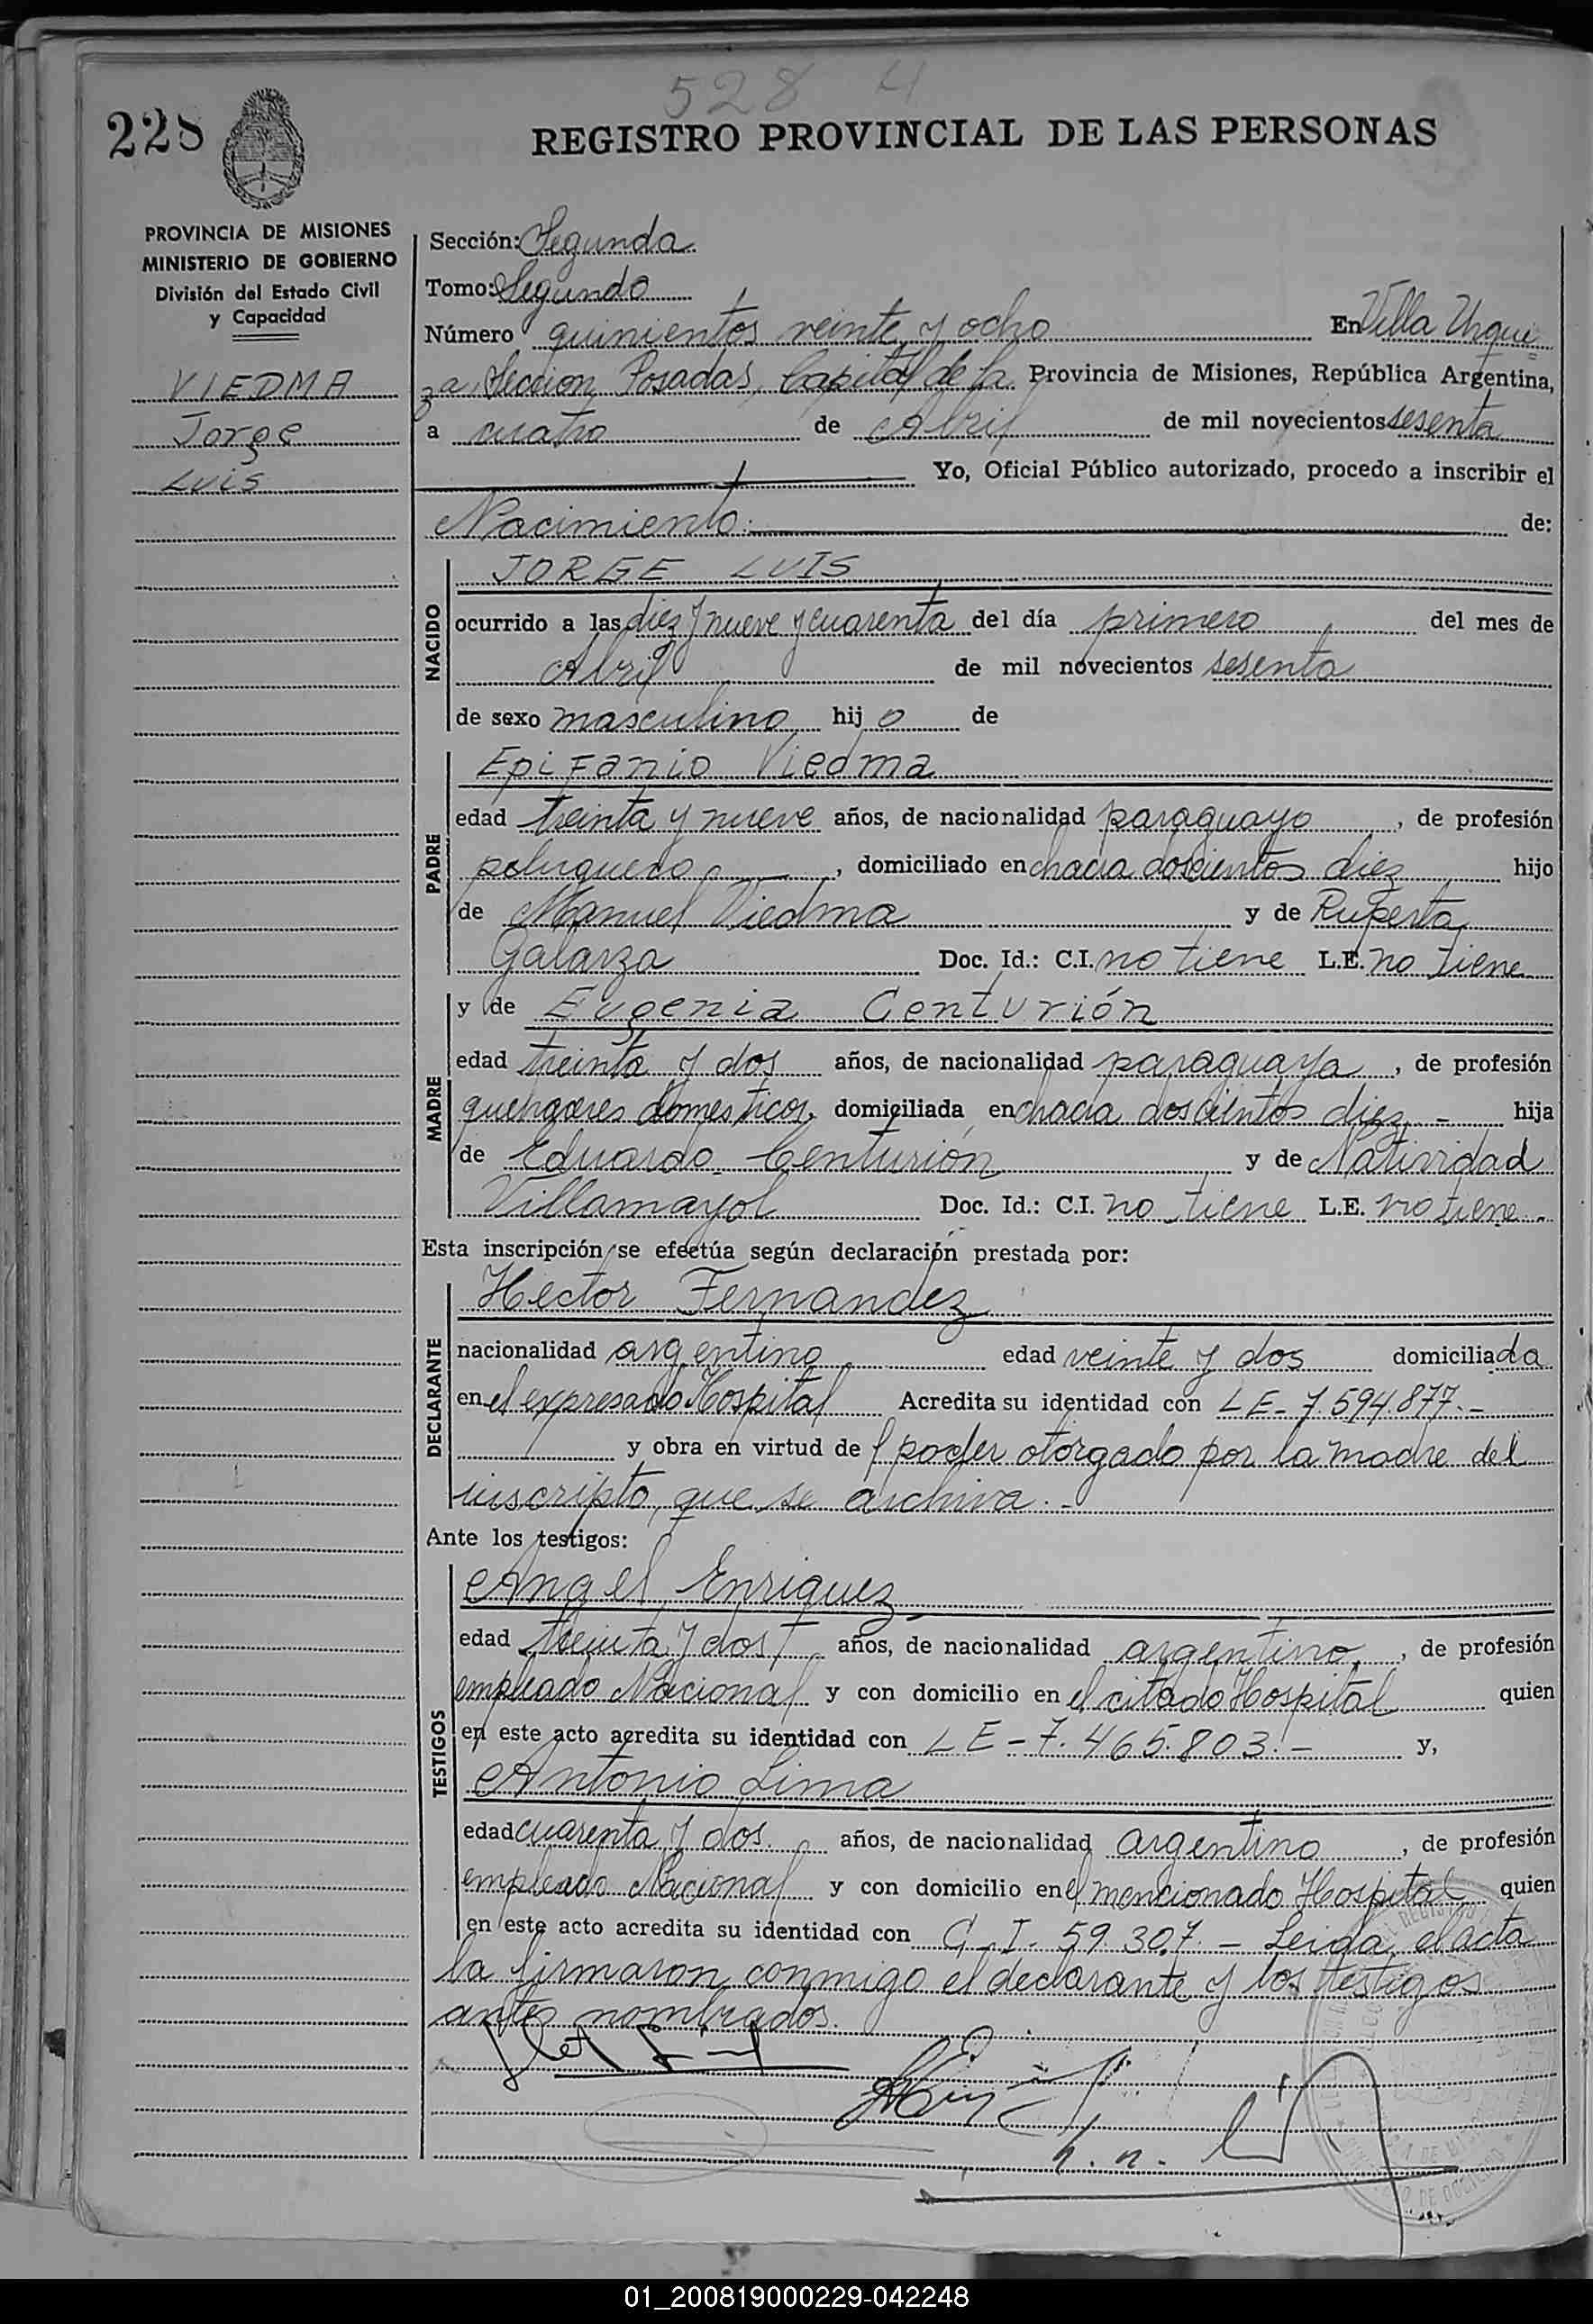 528 4
228
REGISTRO PROVINCIAL DE LAS PERSONAS
PROVINCIA DE MISIONES
MINISTERIO DE GOBIERNO
División del Estado Civil
y Capacidad
VIEDMA
Jorge
Luis
Sección: Segunda
Tomo: Segundo
Número quinientos veinte y ocho En Villa Urqui
za, Sección Posadas, Capital de la Provincia de Misiones, República Argentina,
a cuatro de Abril de mil novecientos sesenta
Yo, Oficial Público autorizado, procedo a inscribir el
Nacimiento: de:
NACIDO
JORGE LUIS
ocurrido a las diez y nueve y cuarenta del día primero del mes de
Abril de mil novecientos sesenta
de sexo masculino hijo de
PADRE
Epifanio Viedma
edad treinta y nueve años, de nacionalidad paraguayo, de profesión
peluquero, domiciliado en chacra doscientos diez hijo
de Manuel Viedma y de Ruperta
Galarza Doc. Id.: C.I. no tiene L.E. no tiene
MADRE
y de Eugenia Centurión
edad treinta y dos años, de nacionalidad paraguaya, de profesión
quehaceres domesticos, domiciliada en chacra doscientos diez.- hija
de Eduardo Centurión y de Natividad
Villamayol Doc. Id.: C.I. no tiene L.E. no tiene.-
Esta inscripción se efectúa según declaración prestada por:
DECLARANTE
Hector Fernandez
nacionalidad argentino edad veinte y dos domiciliada
en el expresado Hospital Acredita su identidad con LE-7.594.877.-
y obra en virtud de poder otorgado por la madre del
inscripto, que se archiva.-
Ante los testigos:
TESTIGOS
Angel Enriquez
edad treinta y dos años, de nacionalidad argentino, de profesión
empleado Nacional y con domicilio en el citado Hospital quien
en este acto acredita su identidad con LE-7.465.803.- y,
Antonio Lima
edad cuarenta y dos. años, de nacionalidad argentino, de profesión
empleado Nacional y con domicilio en el mencionado Hospital quien
en este acto acredita su identidad con C.I. 59.307.- Leida, el acta
la firmaron conmigo el declarante y los testigos
antes nombrados.
01_200819000229-042248